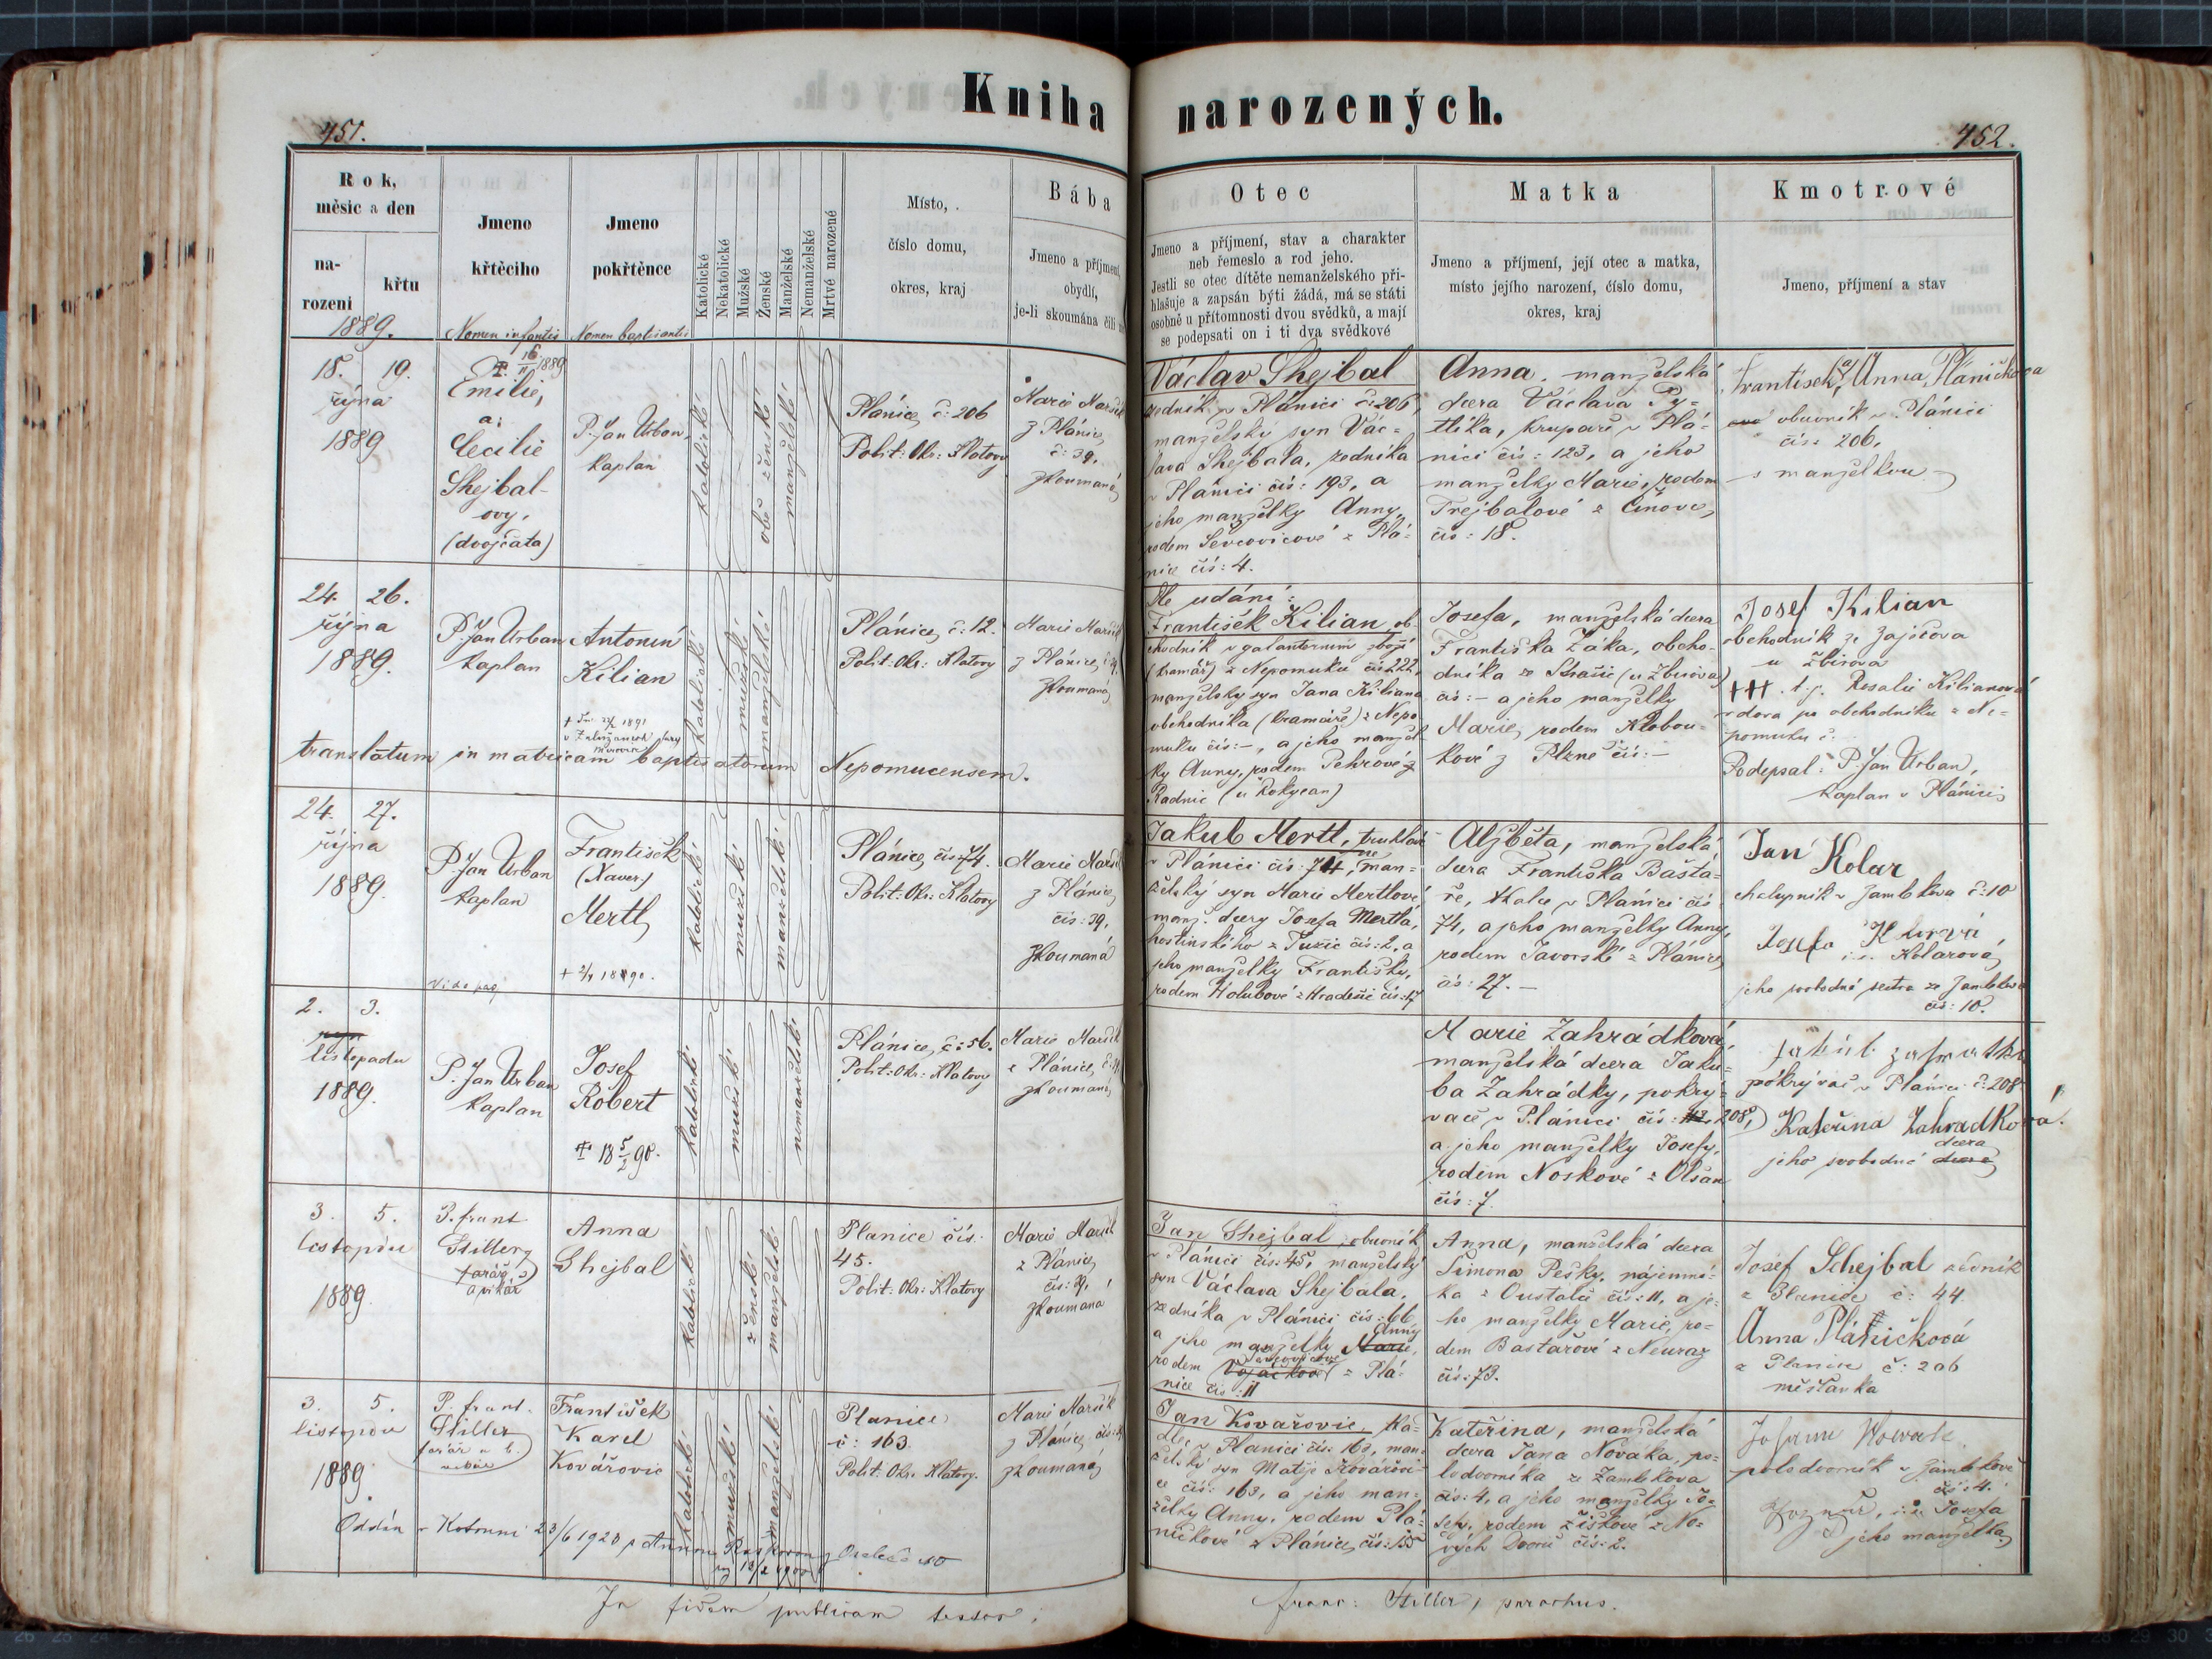 Kniha narozených.
451.
452.
Rok,
měsíc a den
na-
rození
křtu
1889.
Jmeno
křtěcího
Nomen infantis
Jmeno
pokřtěnce
Nomen baptisantis
Katolické
Nekatolické
Mužské
Ženské
Manželské
Nemanželské
Mrtvé narozené
Místo,
číslo domu,
okres, kraj
Bába
Jmeno a příjmení,
obydlí,
je-li skoumána čili
Otec
Jmeno a příjmení, stav a charakter
neb řemeslo a rod jeho.
Jestli se otec dítěte nemanželského při-
hlašuje a zapsán býti žádá, má se státi
osobně u přítomnosti dvou svědků, a mají
se podepsati on i ti dva svědkové
Matka
Jmeno a příjmení, její otec a matka,
místo jejího narození, číslo domu,
okres, kraj
Kmotrové
Jmeno, příjmení a stav
18. 19.
října
1889
Emilie,
a
Cecilie
Shejbal-
ovy,
(dvojčata)
P. Jan Urban,
kaplan
katolické
obě ženské
manželské
Plánice č: 206
Polit: Okr: Klatovy
Marie Maršík
z Plánice
č: 39,
zkoumaná
Václav Shejbal
zedník v Plánici č: 206,
manželský syn Vác-
lava Shejbala, zedníka
v Plánici čís: 193, a
jeho manželky Anny,
rodem Ševcovicové z Plá-
nice čís: 4.
Anna, manželská
dcera Václava Py-
tlíka, krupaře v Plá-
nici čís: 123, a jeho
manželky Marie, rodem
Trejbalové z Činova,
čís: 18.
Frantisek a Anna Pláničkova
obuvník v Plánici
čís: 206,
s manželkou
24. 26.
října
1889.
P. Jan Urban
kaplan
Antonín
Kilian
katolické
mužské
manželské
Plánice č: 12.
Polit: Okr: Klatovy
Marie Maršík
z Plánice,
zkoumaná
Dle udání:
František Kilian, ob-
chodník v galanterním zboží
(kramář) z Nepomuku čís 222,
manželský syn Jana Kiliana
obchodníka (kramáře) z Nepo-
muku čís: –, a jeho manžel-
ky Anny, rodem Pehrové z
Radnic (u Rokycan)
Josefa, manželská dcera
Františka Žáka, obcho-
dníka ze Strašic (u Zbirova)
čís: – a jeho manželky
Marie, rodem Klobou-
kové z Plzně čís: –
Josef Kilian
obchodník ze Zajíčova
u Zbirova
+++ t. j. Rosalie Kilianová
vdova po obchodníku z Ne-
pomuku č:
Podepsal: P. Jan Urban,
kaplan v Plánici
translatum in matricam baptisatorum Nepomucensem.
24. 27.
října
1889.
P. Jan Urban
kaplan
František
(Xaver)
Mertl
Vide pag
katolické
mužské
manželské
Plánice, čís: 74.
Polit: Okr: Klatovy
Marie Maršík
z Plánice
čís: 39,
zkoumaná
Jakub Mertl, truhlář
v Plánici čís: 74, man-
želský syn Marie Mertlové,
manž. dcery Josefa Mertla,
hostinského z Tužic čís: 2, a
jeho manželky Františky,
rodem Holubové z Hradešic čís: 17
Alžběta, manželská
dcera Františka Bašta-
ře, tkalce v Plánici čís
74, a jeho manželky Anny,
rodem Javorské z Plánice
čís: 27. –
Jan Kolar
chalupník v Zamlekva č: 10
Josefa
i. e. Kolarová,
jeho svobodná sestra ze Zamlekva
čís: 10.
2. 3.
listopadu
1889.
P. Jan Urban
kaplan
Josef
Robert
katolické
mužské
nemanželské
Plánice, č: 56.
Polit: Okr: Klatovy
Marie Maršík
z Plánice,
zkoumaná
Marie Zahrádková,
manželská dcera Jaku-
ba Zahrádky, pokrý-
vače v Plánici čís: 208,
a jeho manželky Josefy,
rodem Noskové z Olšan
čís: 7.
pokrývač v Plánici č: 208
Kateřina Zahradková.
jeho svobodná dcera
3. 5.
listopadu
1889
P. frant.
Stiller,
farář
a vikář
Anna
Shejbal
katolické
ženské
manželské
Planice čís.
45.
Polit: Okr: Klatovy
Marie Maršík
z Plánice
zkoumaná
Jan Shejbal, obuvník
v Plánici čís: 45, manželský
syn Václava Shejbala,
zedníka v Plánici čís: 66
a jeho manželky Anny
rodem Ševcovicové z Plá-
nice čís: 11
Anna, manželská dcera
Šimona Pešky, nájemní-
ka z Oustalče čís: 11, a je-
ho manželky Marie, ro-
dem Baštařové z Neuraz
čís: 73.
Josef Schejbal zedník
z Planice č: 44
Anna Pláničková
z Planice č: 206
měšťanka
3. 5.
listopadu
1889
P. frant.
Stiller
František
Karel
Kovářovic
katolické
mužské
manželské
Planice
č: 163.
Polit. Okr: Klatovy.
Marie Maršík
z Plánice
zkoumaná
Jan Kovařovic, tka-
dlec v Planici čís: 163, man-
želský syn Matěje Kovářovi-
ce čís: 163, a jeho man-
želky Anny, rodem Plá-
ničkové z Plánice, čís: 155
Kateřina, manželská
dcera Jana Nováka, po-
lodvorníka ze Zamlekova
čís: 4, a jeho manželky Jo-
sefy, rodem Žiškové z No-
vých Dvorů čís: 2.
Johann Nowak
polodvorník v Zamlekově
čís: 4.
Josefa
jeho manželka
Oddán v Kotouni 23/6 1920 s Annou
In fidem publicam testor:
franc: Stiller, parochus.